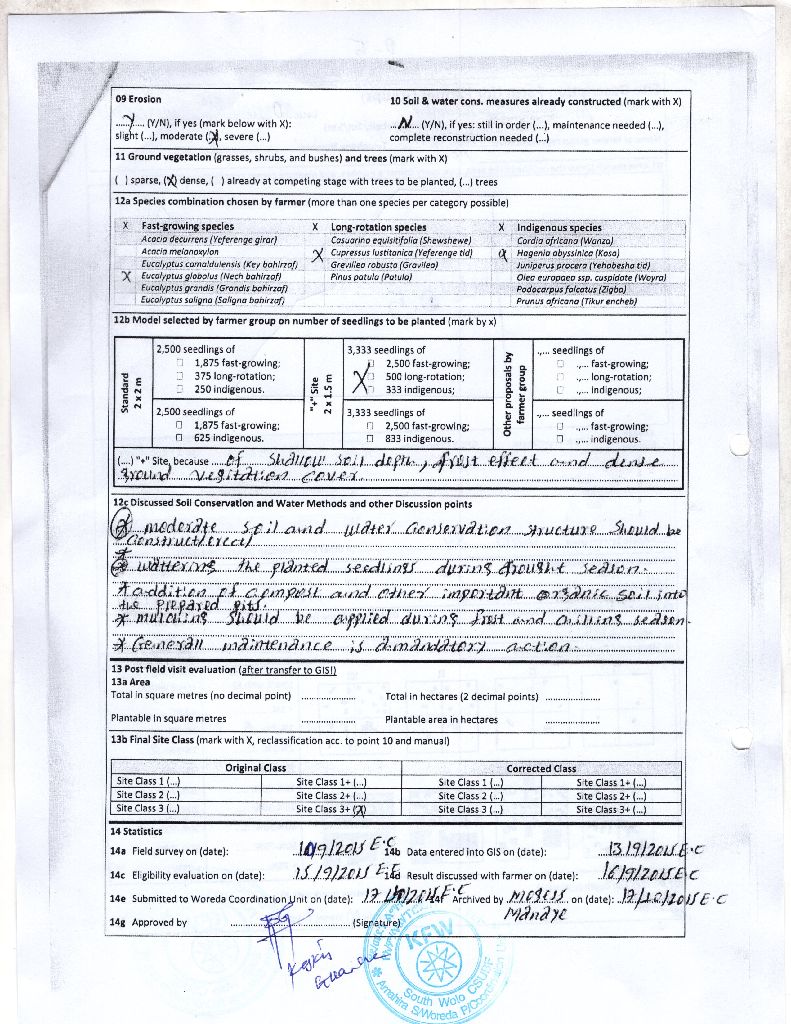 09 Erosion
10 Soil & water cons. measures already constructed (mark with X)
....Y.... (Y/N), if yes (mark below with X):
...N... (Y/N), if yes: still in order (...), maintenance needed (...),
slight (...), moderate (.X.), severe (...)
complete reconstruction needed (...)
11 Ground vegetation (grasses, shrubs, and bushes) and trees (mark with X)
( ) sparse, (X) dense, ( ) already at competing stage with trees to be planted, (...) trees
12a Species combination chosen by farmer (more than one species per category possible)
X Fast-growing species X Long-rotation species X Indigenous species
Acacia decurrens (Yeferenge girar) Casuarina equisitifolia (Shewshewe) Cordia africana (Wanza)
Acacia melanoxylon X Cupressus lustitanica (Yeferenge tid) X Hagenia abyssinica (Kosa)
Eucalyptus camaldulensis (Key bahirzaf) Grevilea robusta (Gravilea) Juniperus procera (Yehabesha tid)
X Eucalyptus globolus (Nech bahirzaf) Pinus patula (Patula) Olea europaea ssp. cuspidate (Woyra)
Eucalyptus grandis (Grandis bahirzaf) Podocarpus falcatus (Zigba)
Eucalyptus saligna (Saligna bahirzaf) Prunus africana (Tikur encheb)
12b Model selected by farmer group on number of seedlings to be planted (mark by x)
Standard
2 x 2 m
2,500 seedlings of
☐ 1,875 fast-growing;
☐ 375 long-rotation;
☐ 250 indigenous.
2,500 seedlings of
☐ 1,875 fast-growing;
☐ 625 indigenous.
"+" Site
2 x 1.5 m
3,333 seedlings of
☐ 2,500 fast-growing;
X ☐ 500 long-rotation;
☐ 333 indigenous;
3,333 seedlings of
☐ 2,500 fast-growing;
☐ 833 indigenous.
Other proposals by
farmer group
.,... seedlings of
☐ .,... fast-growing;
☐ .,... long-rotation;
☐ .,... indigenous;
.,... seedlings of
☐ .,... fast-growing;
☐ .,... indigenous.
(....) "+" Site, because of shallow soil depth, frost effect and dense
ground vegitation cover.
12c Discussed Soil Conservation and Water Methods and other Discussion points
* moderate soil and water conservation structure should be
construct/erect/
* wattering the planted seedlings during drought season.
* addition of compost and other important organic soil into
the prepared pits.
* mulching should be applied during frost and chilling season.
* Generall maintenance is a mandatory action.
13 Post field visit evaluation (after transfer to GIS!)
13a Area
Total in square metres (no decimal point) .................... Total in hectares (2 decimal points) ....................
Plantable in square metres .................... Plantable area in hectares ....................
13b Final Site Class (mark with X, reclassification acc. to point 10 and manual)
Original Class Corrected Class
Site Class 1 (...) Site Class 1+ (...) Site Class 1 (...) Site Class 1+ (...)
Site Class 2 (...) Site Class 2+ (...) Site Class 2 (...) Site Class 2+ (...)
Site Class 3 (...) Site Class 3+ (X) Site Class 3 (...) Site Class 3+ (...)
14 Statistics
14a Field survey on (date): 10/9/2015 E.C 14b Data entered into GIS on (date): 13/9/2015 E.C
14c Eligibility evaluation on (date): 15/9/2015 E.C 14d Result discussed with farmer on (date): 16/9/2015 E.C
14e Submitted to Woreda Coordination Unit on (date): 17/10/2015 E.C 14f Archived by Mogess on (date): 17/10/2015 E.C
Manaye
14g Approved by .................... (Signature)
KFW
South Wolo